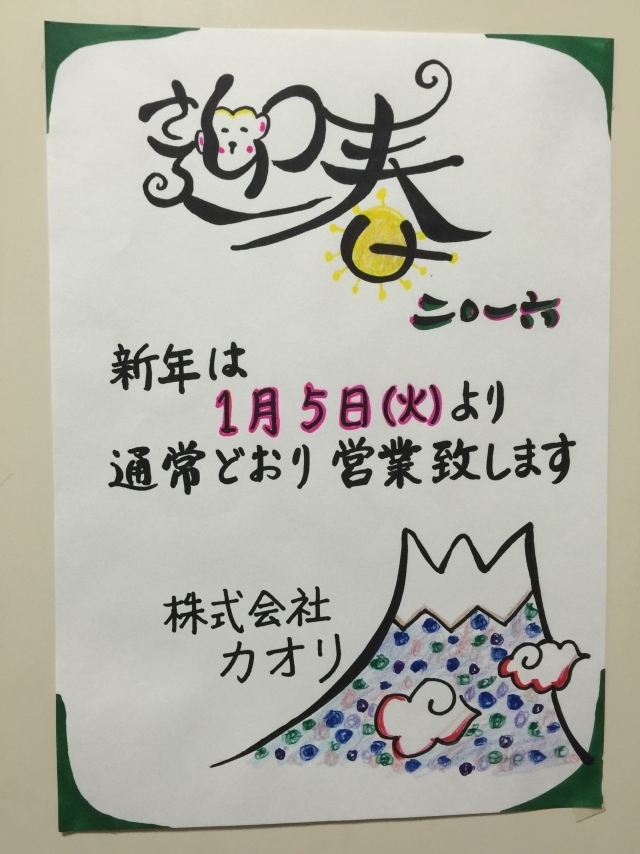 迎春
二〇一六
新年は
1月5日(火)より
通常どおり営業致します
株式会社
カオリ